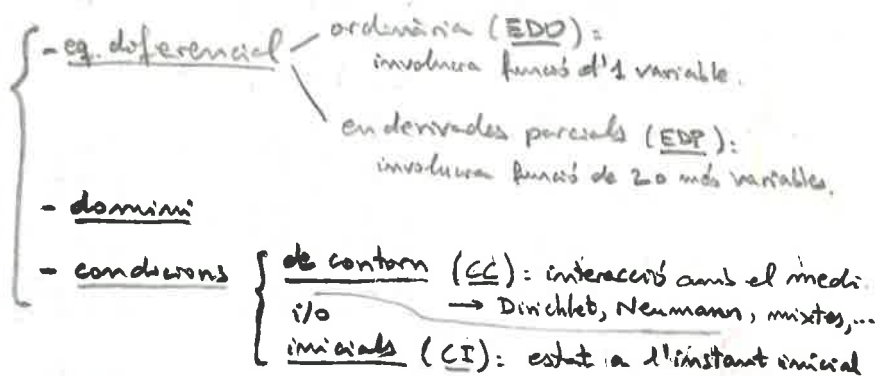 - eq. diferencial
ordinària (EDO):
involucra funció d'1 variable.
en derivades parcials (EDP):
involucra funció de 2 o més variables.
- domini
- condicions
de contorn (CC): interacció amb el medi.
→ Dirichlet, Neumann, mixtes,...
i/o
inicials (CI): estat a l'instant inicial